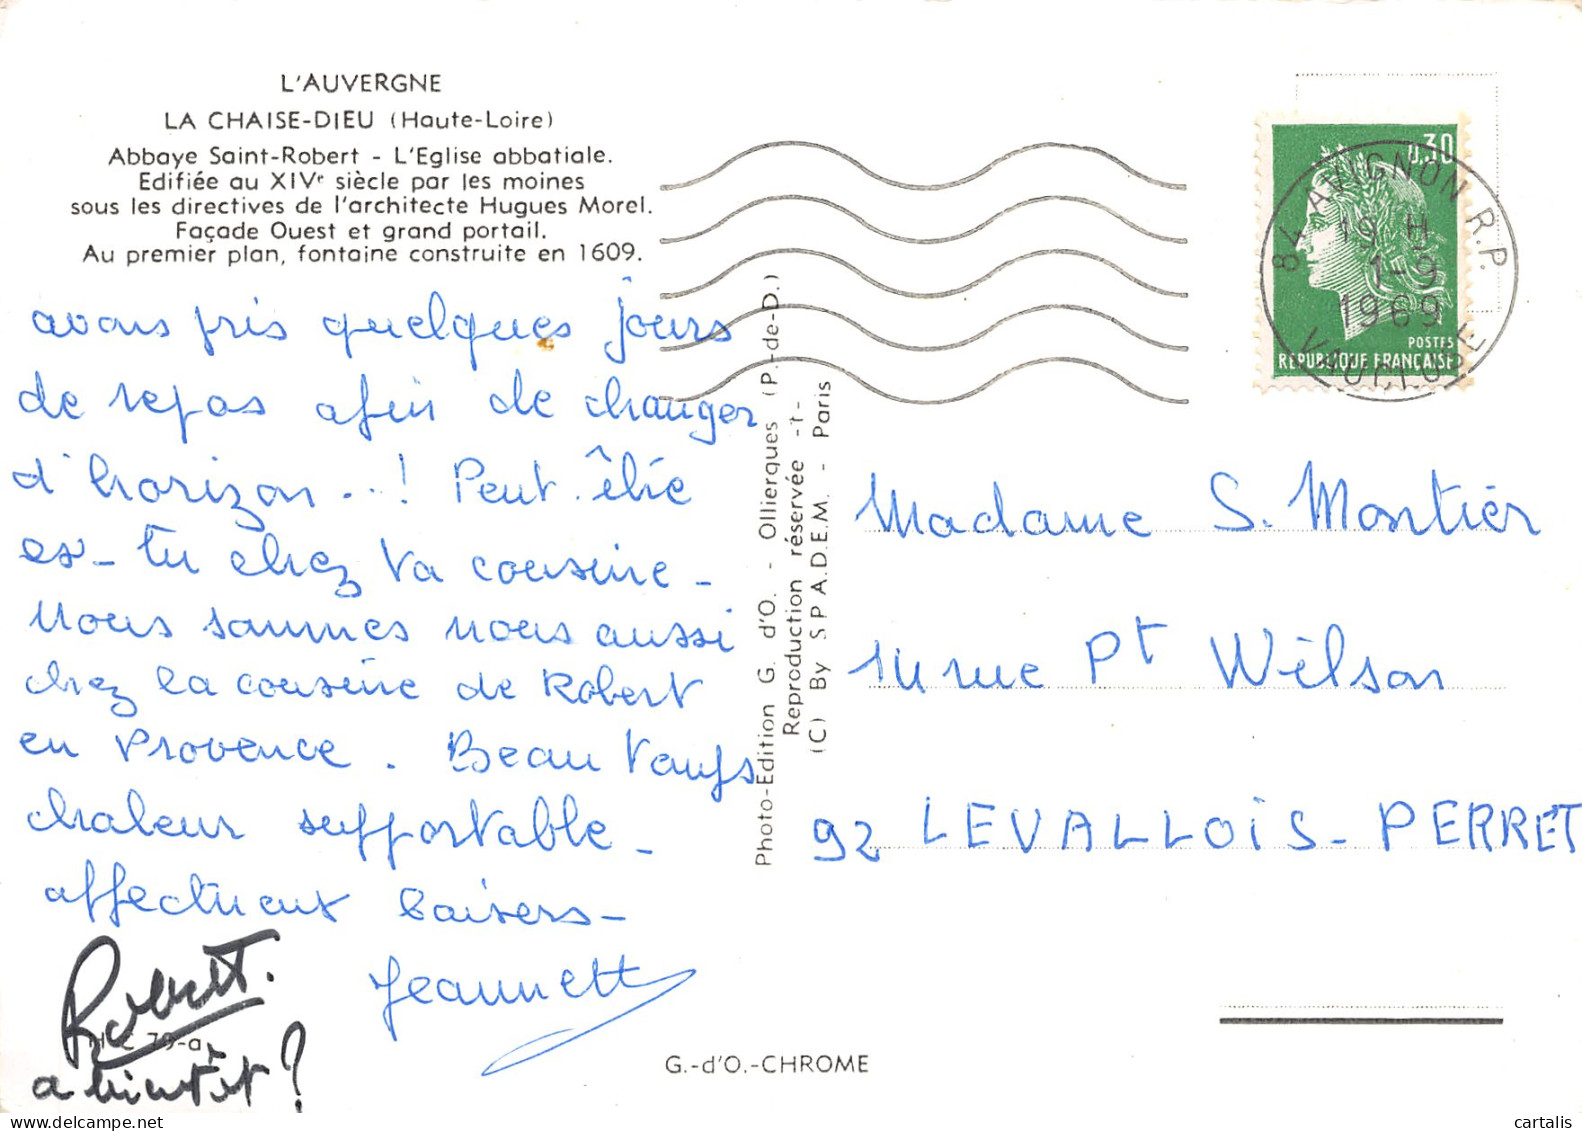 L'AUVERGNE
LA CHAISE-DIEU (Haute-Loire)
Abbaye Saint-Robert - L'Eglise abbatiale.
Edifiée au XIVe siècle par les moines
sous les directives de l'architecte Hugues Morel.
Façade Ouest et grand portail.
Au premier plan, fontaine construite en 1609.
avons pris quelques jours
de repos afin de changer
d'horizon...! Peut-être
es-tu chez ta cousine -
Nous sommes nous aussi
chez la cousine de Robert
en Provence. Beau temps
chaleur supportable -
affectueux baisers -
Jeannette
Robert.
a bientôt ?
H C 79-a
G.-d'O.-CHROME
Photo-Edition G. d'O. - Ollierques (P.-de-D.)
Reproduction réservée -t-
(C) By S P A.D.E.M. - Paris
0,30
POSTES
REPUBLIQUE FRANÇAISE
84 AVIGNON R.P.
19 H
1-9
1969
VAUCLUSE
Madame S. Montier
14 rue Pt Wilson
92 LEVALLOIS-PERRET
cartalis
delcampe.net